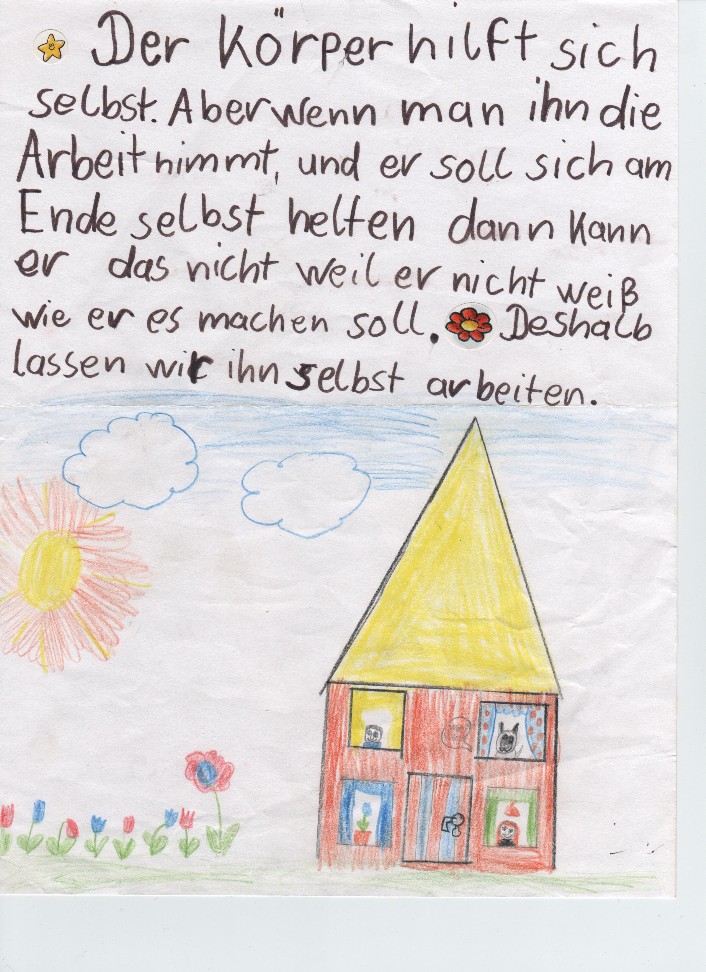 Der Körper hilft sich
selbst. Aber wenn man ihn die
Arbeit nimmt, und er soll sich am
Ende selbst helfen dann kann
er das nicht weil er nicht weiß
wie er es machen soll. Deshalb
lassen wir ihn selbst arbeiten.